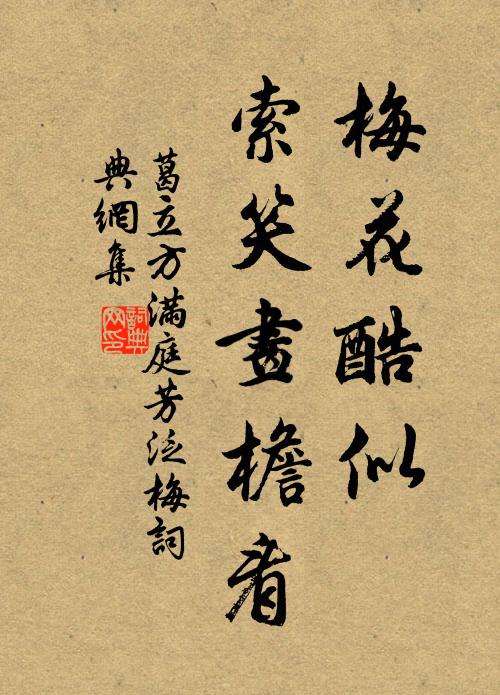 梅花酷似
索笑畫檐看
葛立方滿庭芳泛梅詞
典網集
詞典網印